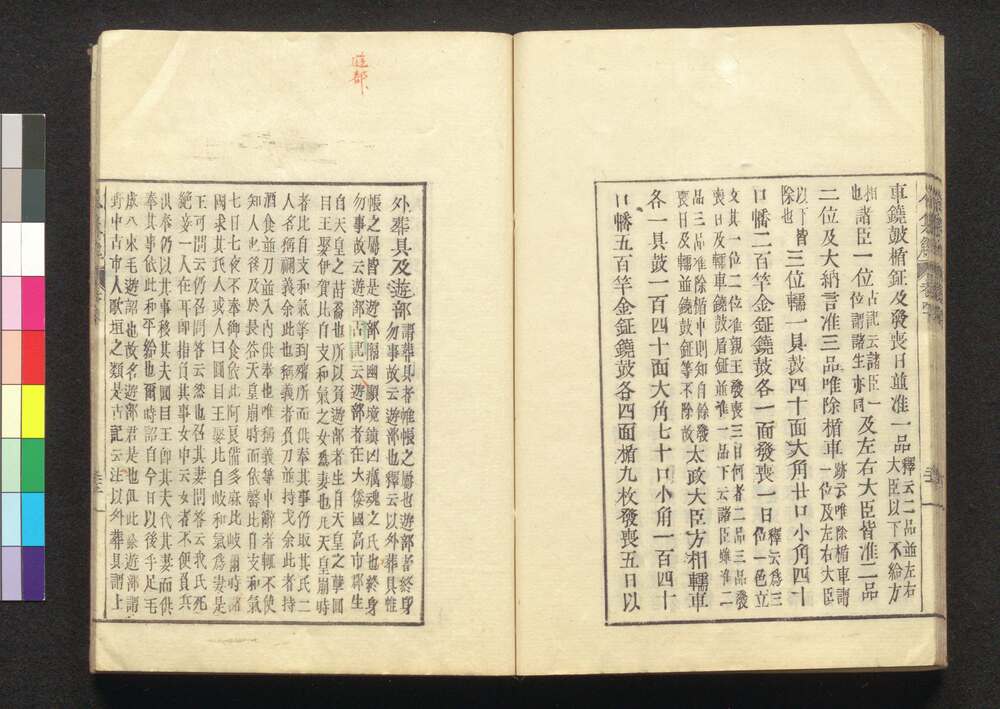 車鐃鼓楯鉦及發喪日並准一品釋云二品並左右大臣以下不給方
相也諸臣一位古記云諸臣一位謂諸生亦同及左右大臣皆准二品
二位及大納言准三品唯除楯車跡云唯除楯車謂一位及左右大臣
以下皆除也三位轜一具鼓四十面大角廿口小角四十
口幡二百竿金鉦鐃鼓各一面發喪一日釋云爲三位一色立
文其一位二位准親王發喪三日何者二品三品發喪日及轜車鐃鼓盾鉦並准一品下云諸臣准二
品三品准除楯車則知自餘發喪日及轜並鐃鼓鉦等不除故太政大臣方相轜車
各一具鼓一百四十面大角七十口小角一百四十
口幡五百竿金鉦鐃鼓各四面楯九枚發喪五日以
遊部
外葬具及遊部謂葬具者帷帳之屬也遊部者終身勿事故云遊部也釋云以外葬具帷
帳之屬皆是遊部隔幽顯境鎮凶癘魂之氏也終身勿事故云遊部古記云遊部者在大倭國高市郡生
自天皇之苗裔也所以負遊部者生自天皇之孽圓目王娶伊賀比自支和氣之女爲妻也凡天皇崩時
者比自支和氣等到殯所而供奉其事仍取其氏二人名稱禰義余此也禰義者負刀並持戈余此者持
酒食並刀並入內供奉也唯禰義等申辭者輒不使知人也後及於長谷天皇崩時而依罄比自支和氣
七日七夜不奉御食依此阿良備多麻比岐爾時諸國求其氏人或人曰圓目王娶比自岐和氣爲妻是
王可問云仍召問答云然也召其妻問答云我氏死絕妾一人在耳即指負其事女申云女者不便負兵
供奉仍以其事移其夫圓目王即其夫代其妻而供奉其事依此和平給也爾時詔自今日以後手足毛
成八束毛遊詔也故名遊部君是也但此條遊部謂
野中古市人歌垣之類是古記云注以外葬具謂上